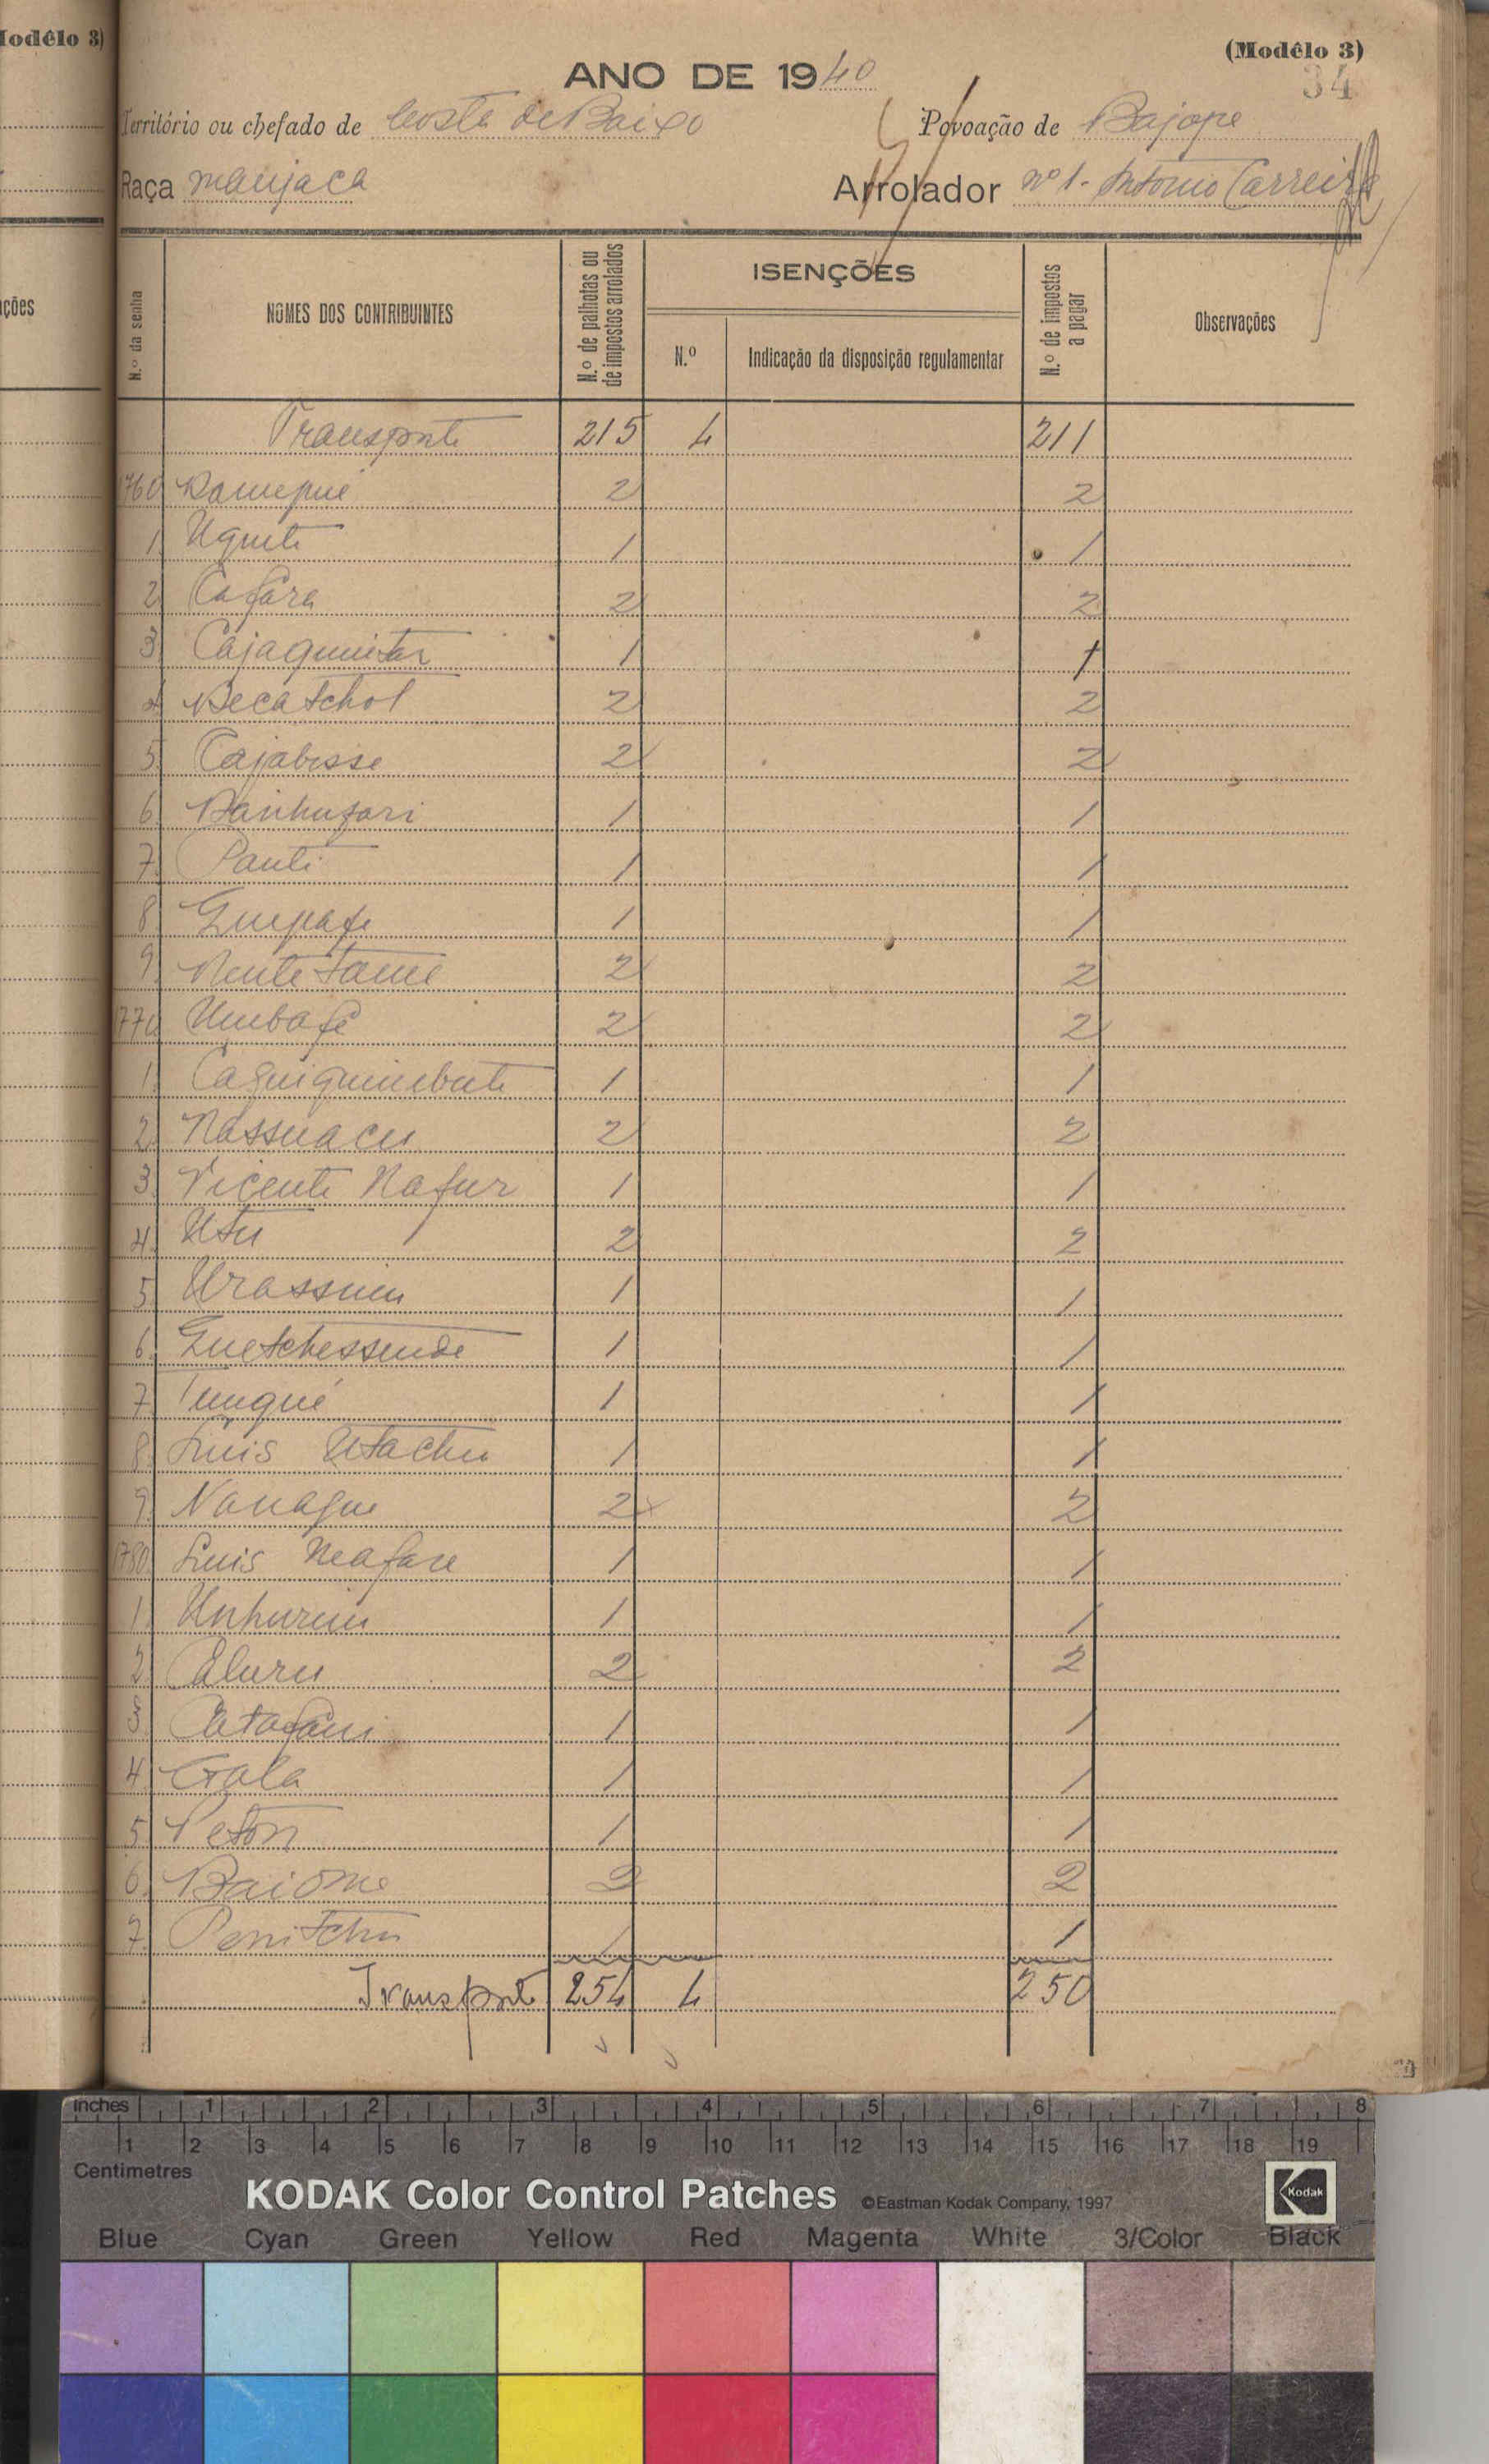 odêlo 3)
ações
(Modêlo 3)
34
ANO DE 1940
Território ou chefado de Costa de Baixo Povoação de Bajope
Raça manjaca Arrolador nº 1 - Antonio Carreira
N.º da senha NOMES DOS CONTRIBUINTES N.º de palhotas ou de impostos arrolados ISENÇÕES N.º de impostos a pagar Observações
N.º Indicação da disposição regulamentar
Transporte 215 4 211
1760 2 2
1 1 1
2 Cafara 2 2
3 1 1
4 Becatchol 2 2
5 Cajabisse 2 2
6 Banhufari 1 1
7 Pauti 1 1
8 Guepafe 1 1
9 2 2
1770 Umbafé 2 2
1 1 1
2 Nassuacu 2 2
3 Vicente Nafur 1 1
4 Utu 2 2
5 Urassum 1 1
6 1 1
7 1 1
8 Luis Utachu 1 1
9 2 2
1780 Luis Neafare 1 1
1 1 1
2 2 2
3 1 1
4 Gala 1 1
5 Peton 1 1
6 Baiome 2 2
7 Penitchu 1 1
Transporte 254 4 250
inches 1 2 3 4 5 6 7 8
1 2 3 4 5 6 7 8 9 10 11 12 13 14 15 16 17 18 19
Centimetres
KODAK Color Control Patches ©Eastman Kodak Company, 1997 Kodak
Blue Cyan Green Yellow Red Magenta White 3/Color Black